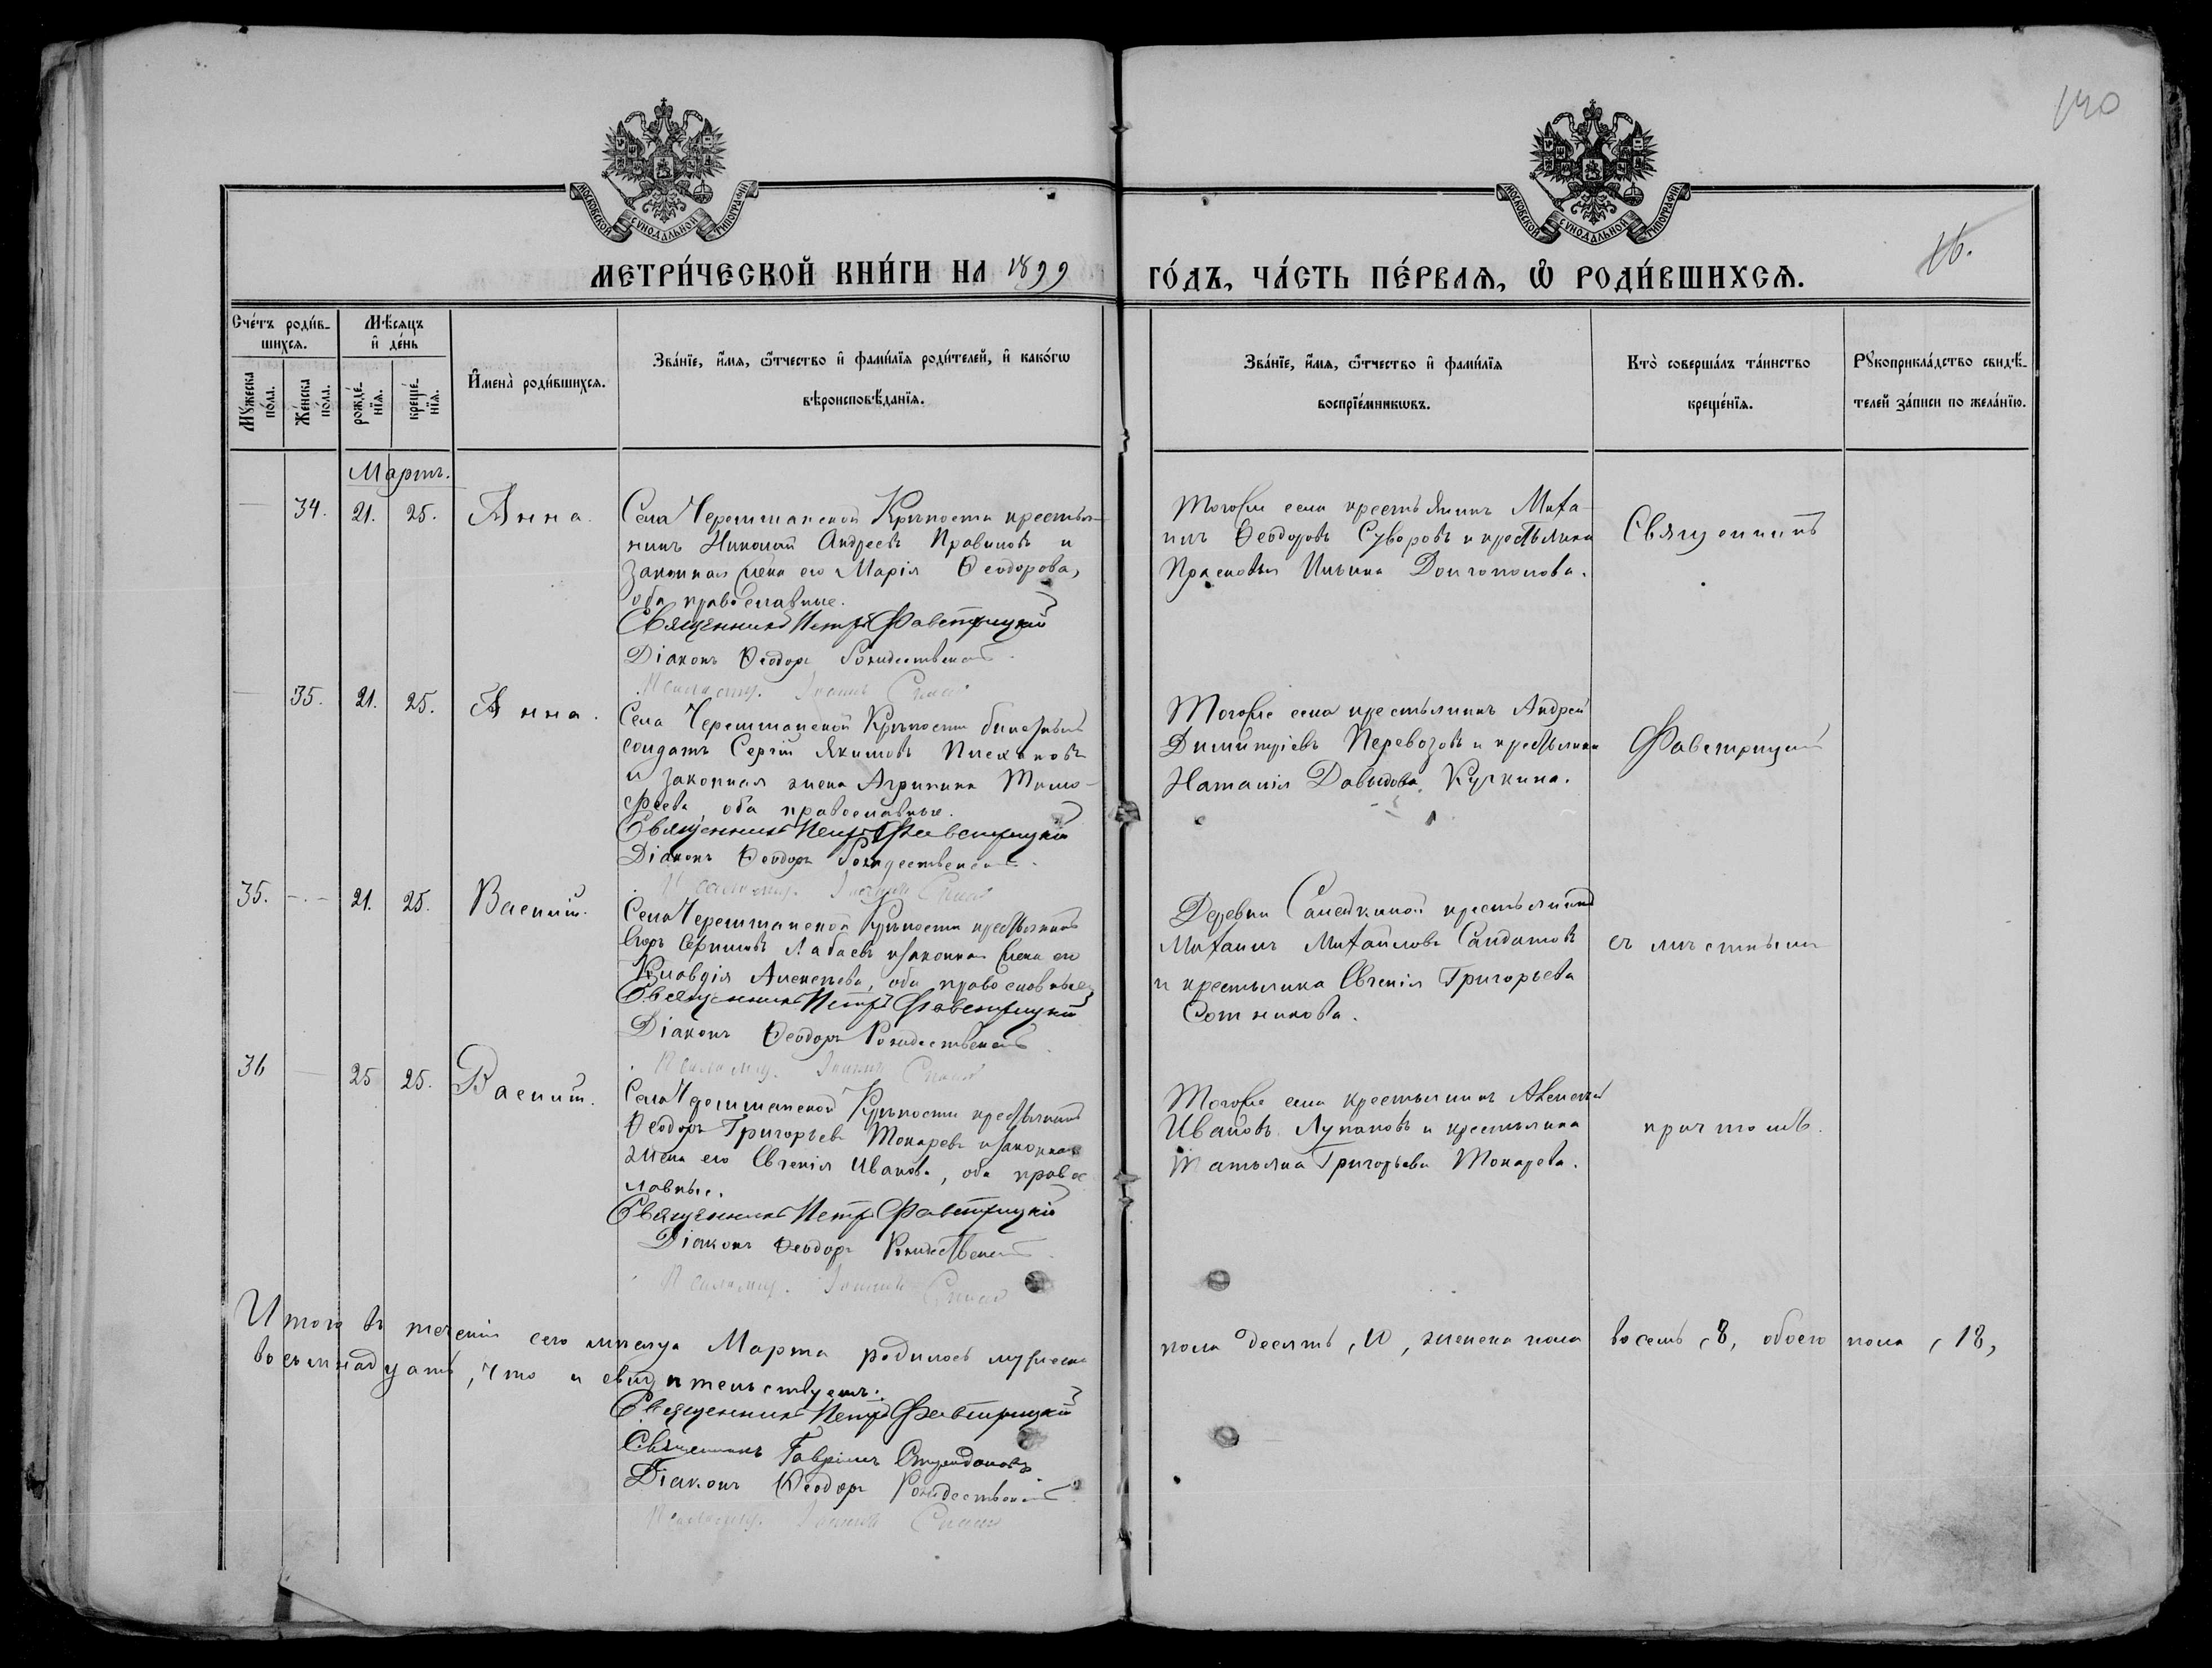 140
МОСКОВСКОЙ СѴНОДАЛЬНОЙ ТИПОГРАФІИ
МОСКОВСКОЙ СѴНОДАЛЬНОЙ ТИПОГРАФІИ
МЕТРИ́ЧЕСКОЙ КНИ́ГИ НА 1899
ГО́ДЪ, ЧА́СТЬ ПЕ́РВАѦ, Ѡ҆ РОДИ́ВШИХСѦ.
16.
Сче́тъ роди́в-
шихсѧ.
Мꙋ́жеска по́ла.
Же́нска по́ла.
Мѣ́сѧцъ
и҆ де́нь
рожде́-
нїѧ.
креще́-
нїѧ.
И҆мена̀ роди́вшихсѧ.
Зва́нїе, и҆́мѧ, ѻ҆́тчество и҆ фами́лїѧ роди́телей, и҆ како́гѡ
вѣроисповѣ́данїѧ.
Зва́нїе, и҆́мѧ, ѻ҆́тчество и҆ фами́лїѧ
воспрїе́мникѡвъ.
Кто̀ соверша́лъ та́инство
креще́нїѧ.
Рꙋкоприкла́дство свидѣ́-
телей за́писи по жела́нїю.
Мартъ.
34. 21. 25. Анна.
Села Черемшанской Крѣпости крестья-
нинъ Николай Андреевъ и
законная жена его Марія Ѳеодорова,
оба православные.
Священникъ Петръ Фавстрицкій
Діаконъ Ѳеодоръ Рождественскій
Псаломщ. Іоаннъ
Тогоже села крестьянинъ Миха-
илъ Ѳеодоровъ Суворовъ и крестьянка
Прасковья Ильина Долгополова.
Священникъ
35. 21. 25. Анна.
Села Черемшанской Крѣпости билетный
солдатъ Сергій Якимовъ Плехановъ
и законная жена Агрипина Тимо-
феева, оба православные.
Священникъ Петръ Фавстрицкій
Діаконъ Ѳеодоръ Рождественскій.
Псаломщ. Іоаннъ
Тогоже села крестьянинъ Андрей
Димитріевъ Перевозовъ и крестьянка
Наталія Давыдова Куркина.
Фавстрицкій
35. 21. 25. Василій.
Села Черемшанской Крѣпости крестьянинъ
Егоръ Лабаевъ и законная жена его
Клавдія Алексѣева, оба православные
Священникъ Петръ Фавстрицкій
Діаконъ Ѳеодоръ Рождественскій
Псаломщ. Іоаннъ
Деревни крестьянинъ
Михаилъ Михайловъ Солдатовъ
и крестьянка Евгенія Григорьева
Сотникова.
съ мѣстнымъ
36 25 25. Василій.
Села Черемшанской Крѣпости крестьянинъ
Ѳеодоръ Григорьевъ Токаревъ и законная
жена его Евгенія Иванова, оба правос
лавные.
Священникъ Петръ Фавстрицкій
Діаконъ Ѳеодоръ Рождественскій
Псаломщ. Іоаннъ
Тогоже села крестьянинъ Алексѣй
Ивановъ Лукановъ и крестьянка
Татьяна Григорьева Токарева.
причтомъ.
Итого въ теченіи сего мѣсяца Марта родилось мужеска
пола десять, 10, женска пола восемь, 8, обоего пола, 18,
восемнадцать, что и свидѣтельствуемъ:
Священникъ Петръ Фавстрицкій
Священникъ Гавріилъ
Діаконъ Ѳеодоръ Рождественскій
Псаломщ. Іоаннъ